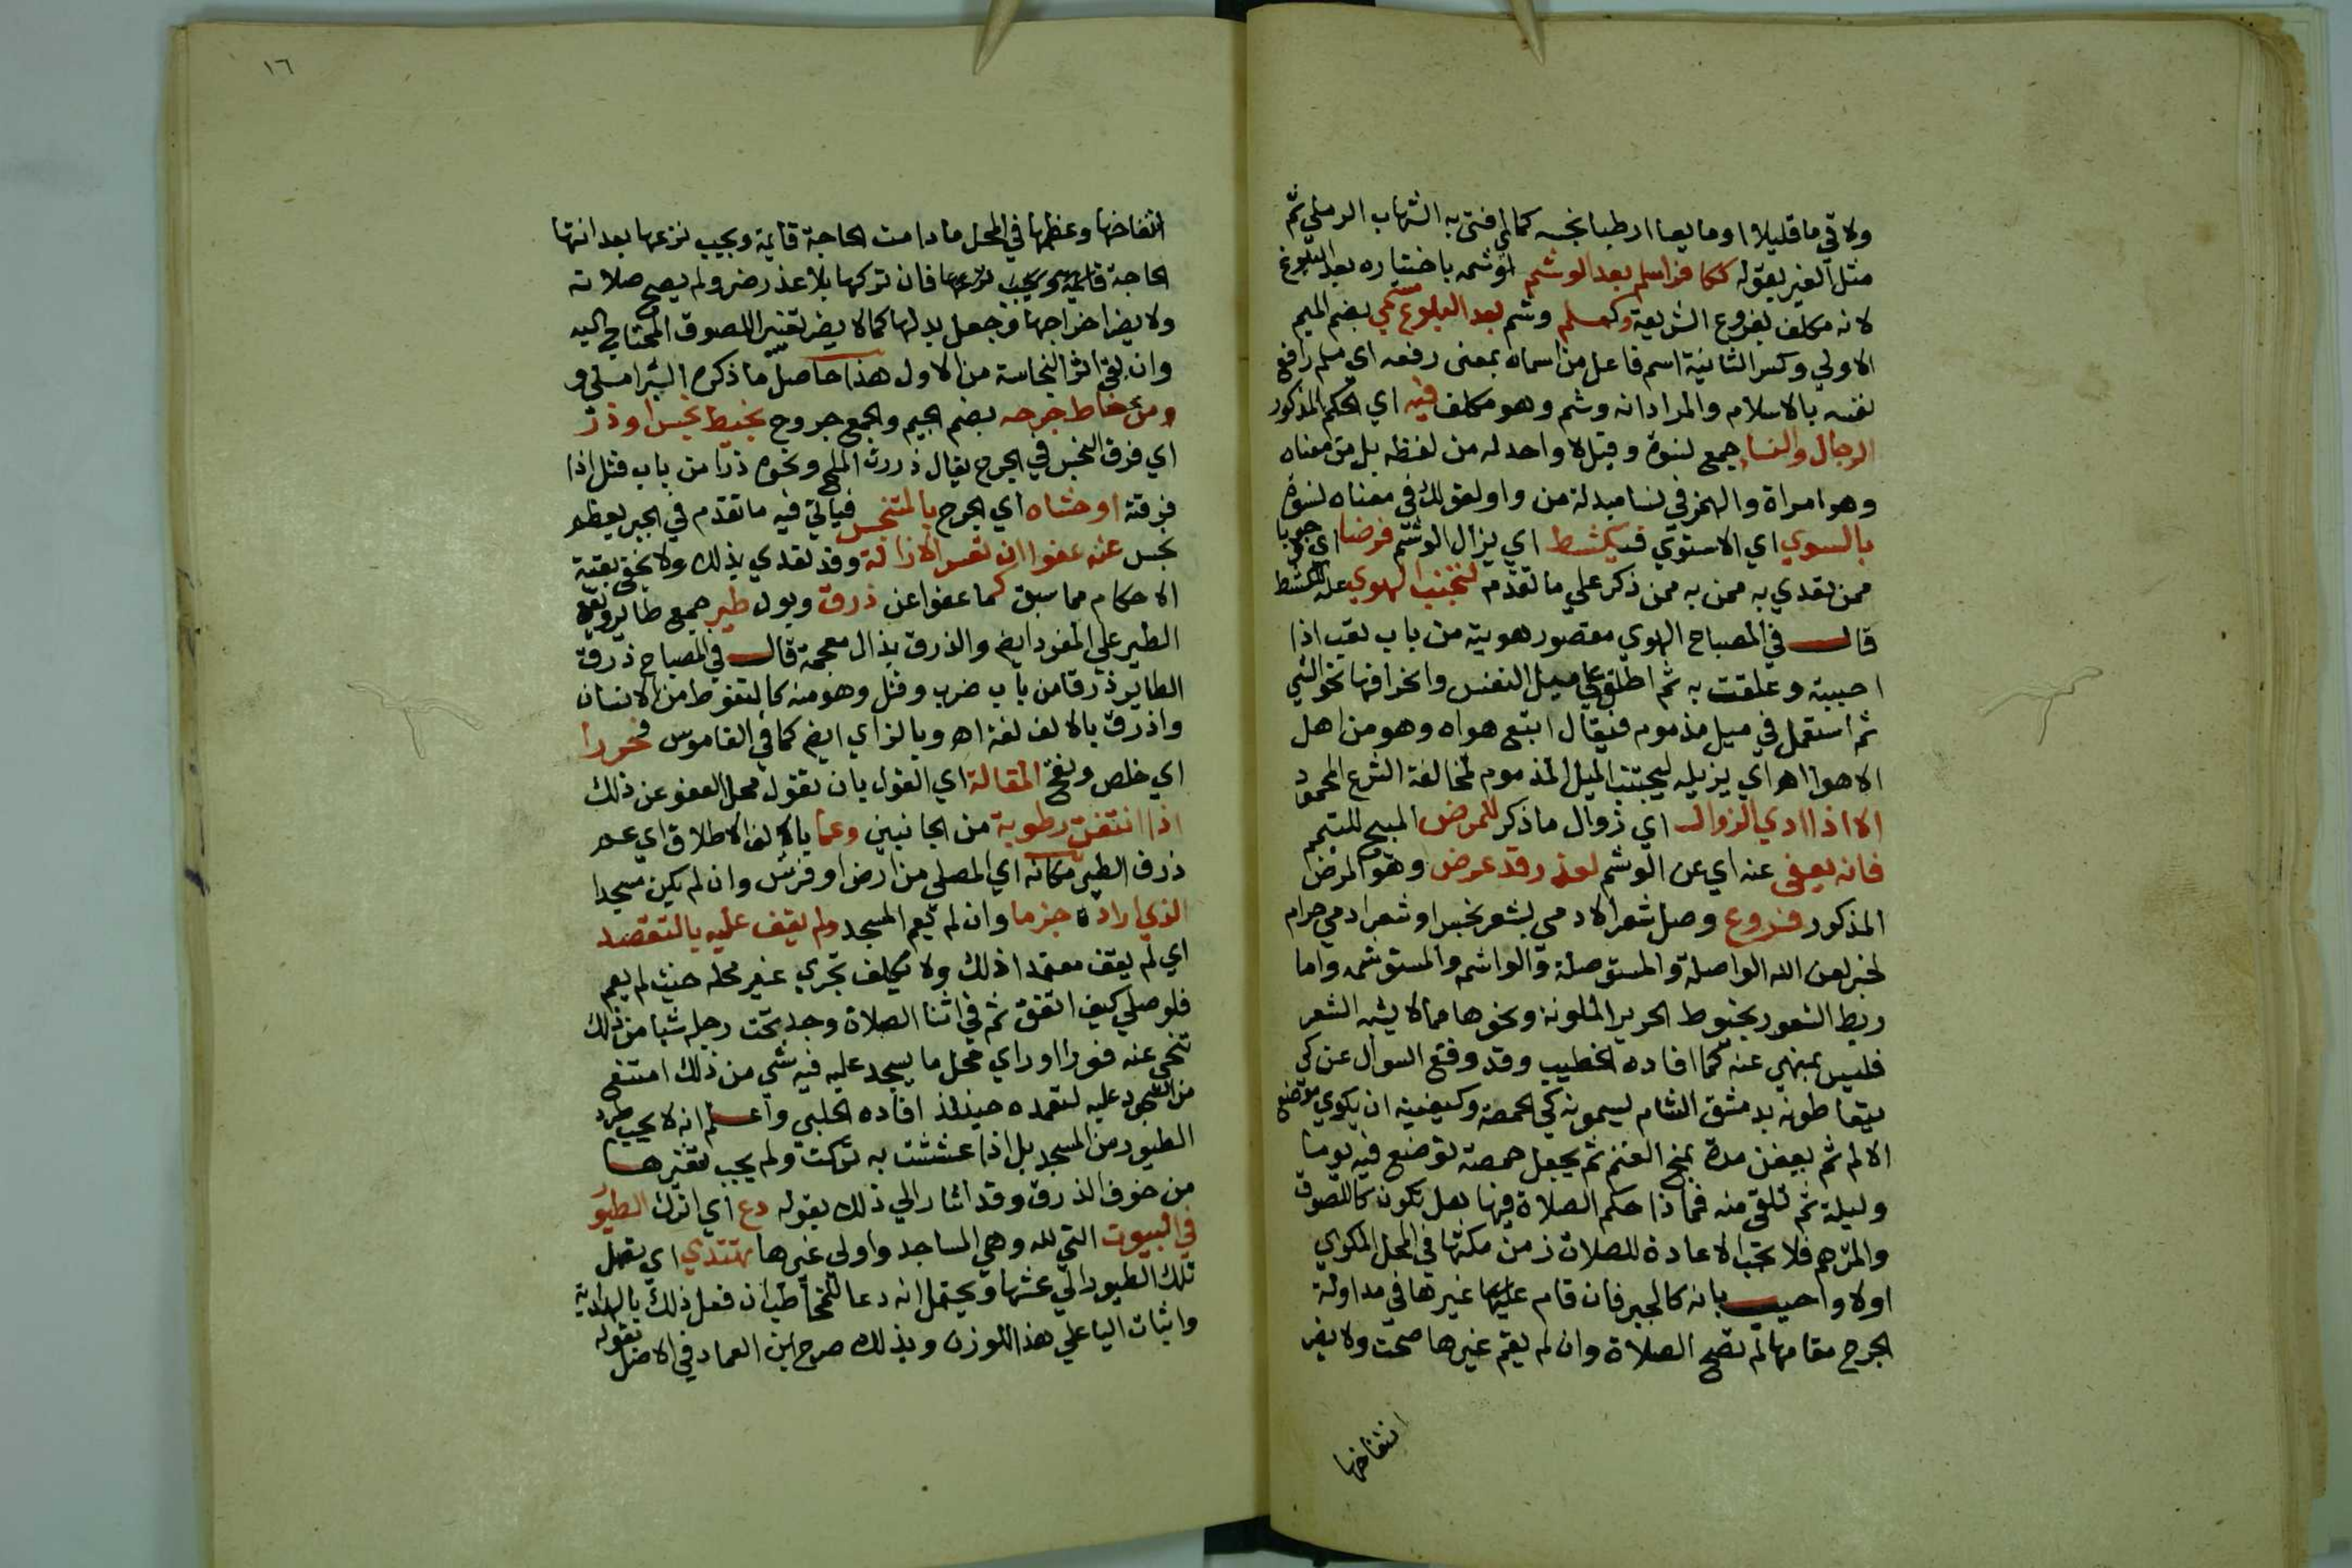 ولاقي ماقليلا او مايعا ارطبا نجسه كما افتى به الشهاب الرملي ثم
مثل الغير بقوله ككافر اسلم بعد الوشم او شمه باختياره بعد البلوغ
لانه مكلف بفروع الشريعة وكمسلم وشم بعد البلوغ مسمي بضم الميم
الاولي وكسر الثانية اسم فاعل من اسماه بمعنى رفعه اي مسلم رافع
نفسه بالاسلام والمراد انه وشم وهو مكلف فيه اي الحكم المذكور
الرجال والنسا جمع نسوة وقيل لا واحد له من لفظه بل من معناه
وهو امراة والهمز في نسا مبدلة من واو لقولك في معناه نسوة
بالسوي اي الاستوي فيكشط اي يزال الوشم فرضا اي وجوبا
ممن تعدي به ممن به ممن ذكر علي ما تقدم لتجنب الهوي علة لكشط
قال في المصباح الهوي مقصور هويته من باب تعب اذا
احببته وعلقت به ثم اطلق علي ميل النفس وانحرافها نحو الشي
ثم استعمل في ميل مذموم فيقال اتبع هواه وهو من اهل
الاهوا اهـ اي يزيله ليجتنب الميل المذموم لمخالفة الشرع المحمود
الا اذا ادي الزوال اي زوال ما ذكر للمرض المبيح للتيمم
فانه يعفي عنه اي عن الوشم لعذر قد عرض وهو المرض
المذكور فروع وصل شعر الادمي بشعر نجس او شعر ادمي حرام
لخبر لعن الله الواصلة والمستوصلة والواشمه والمستوشمه واما
ربط الشعور بخيوط الحرير الملونة ونحوها مما لا يشبه الشعر
فليس بمنهي عنه كما افاده الخطيب وقد وقع السوال عن كي
يتعاطونه بدمشق الشام يسمونه كي الحمصة وكيفيته ان يكوي موضع
الالم ثم يعفن مدة بمخ الغنم ثم يجعل حمصة توضع فيه يوما
وليلة ثم تلقي منه فماذا حكم الصلاة فيها هل تكون كاللصوق
والمرهم فلا تجب الاعادة للصلاة زمن مكثها في المحل المكوي
اولا واجيب بانه كالجبر فان قام عليها غيرها في مداواة
الجرح مقامها لم تصح الصلاة وان لم يقم غيرها صحت ولا يضر
انتفاخها
١٦
انتفاخها وعظمها في المحل ما دامت الحاجة قايمة ويجب نزعها بعد انتها
الحاجة فان تركها بلا عذر ضر ولم يصح صلاته
ولا يضر اخراجها وجعل بدلها كما لا يضر تغيير اللصوق المحتاج اليه
وان بقي اثر النجاسة من الاول هذا حاصل ما ذكره الشبراملسي و
ومن خاط جرحه بضم الجيم والجمع جروح بخيط نجس او ذر
اي فرق النجس في الجرح يقال ذررت الملح ونحوه ذرا من باب قتل اذا
فرقته او حشاه اي الجرح بالمتنجس فياتي فيه ما تقدم في الجبر بعظم
نجس عنه عفوا ان تعسر الازالة وقد تعدي بذلك ولا يخفي بقية
الاحكام مما سبق كما عفوا عن ذرق وبول طير جمع طاير ويقع
الطير علي المفرد ايضم والذرق بذال معجمة قال في المصباح ذرق
الطاير ذرقا من باب ضرب وقتل وهو منه كالتغوط من الانسان
واذرق بالالف لغة اهـ وبالزاي ايضم كما في القاموس فحررا
اي خلص ونقح المقالة اي القول بان تقول محل العفو عن ذلك
اذا انتفت رطوبة من الجانبين وعما بالالف الاطلاق اي عم
ذرق الطير مكانه اي المصلي من ارض او فرش وان لم يكن مسجدا
الذي اراده جزما وان لم يعم المسجد ولم يقف عليه بالتقصد
اي لم يقف معتمدا ذلك ولا يكلف تحري غير محله حيث لم يعم
فلو صلي كيف اتفق ثم في اثنا الصلاة وجد تحت رجله شيا من ذلك
تنحي عنه فورا او راي محل ما يسجد عليه فيه شي من ذلك امتنع
من السجود عليه لتعمده حينئذ افاده الحلبي واعلم انه لا يجب طرد
الطيور من المسجد بل اذا عششت به تركت ولم يجب تنفيرها
من خوف الذرق وقد اشار الي ذلك بقوله دع اي اترك الطيور
في البيوت التي لله وهي المساجد واولي غيرها تهتدي اي تصل
تلك الطيور الي عشها ويحتمل انه دعا للمخاطب ان فعل ذلك بالهداية
واثبات اليا علي هذا للوزن وبذلك صرح ابن العماد في الاصل بقوله